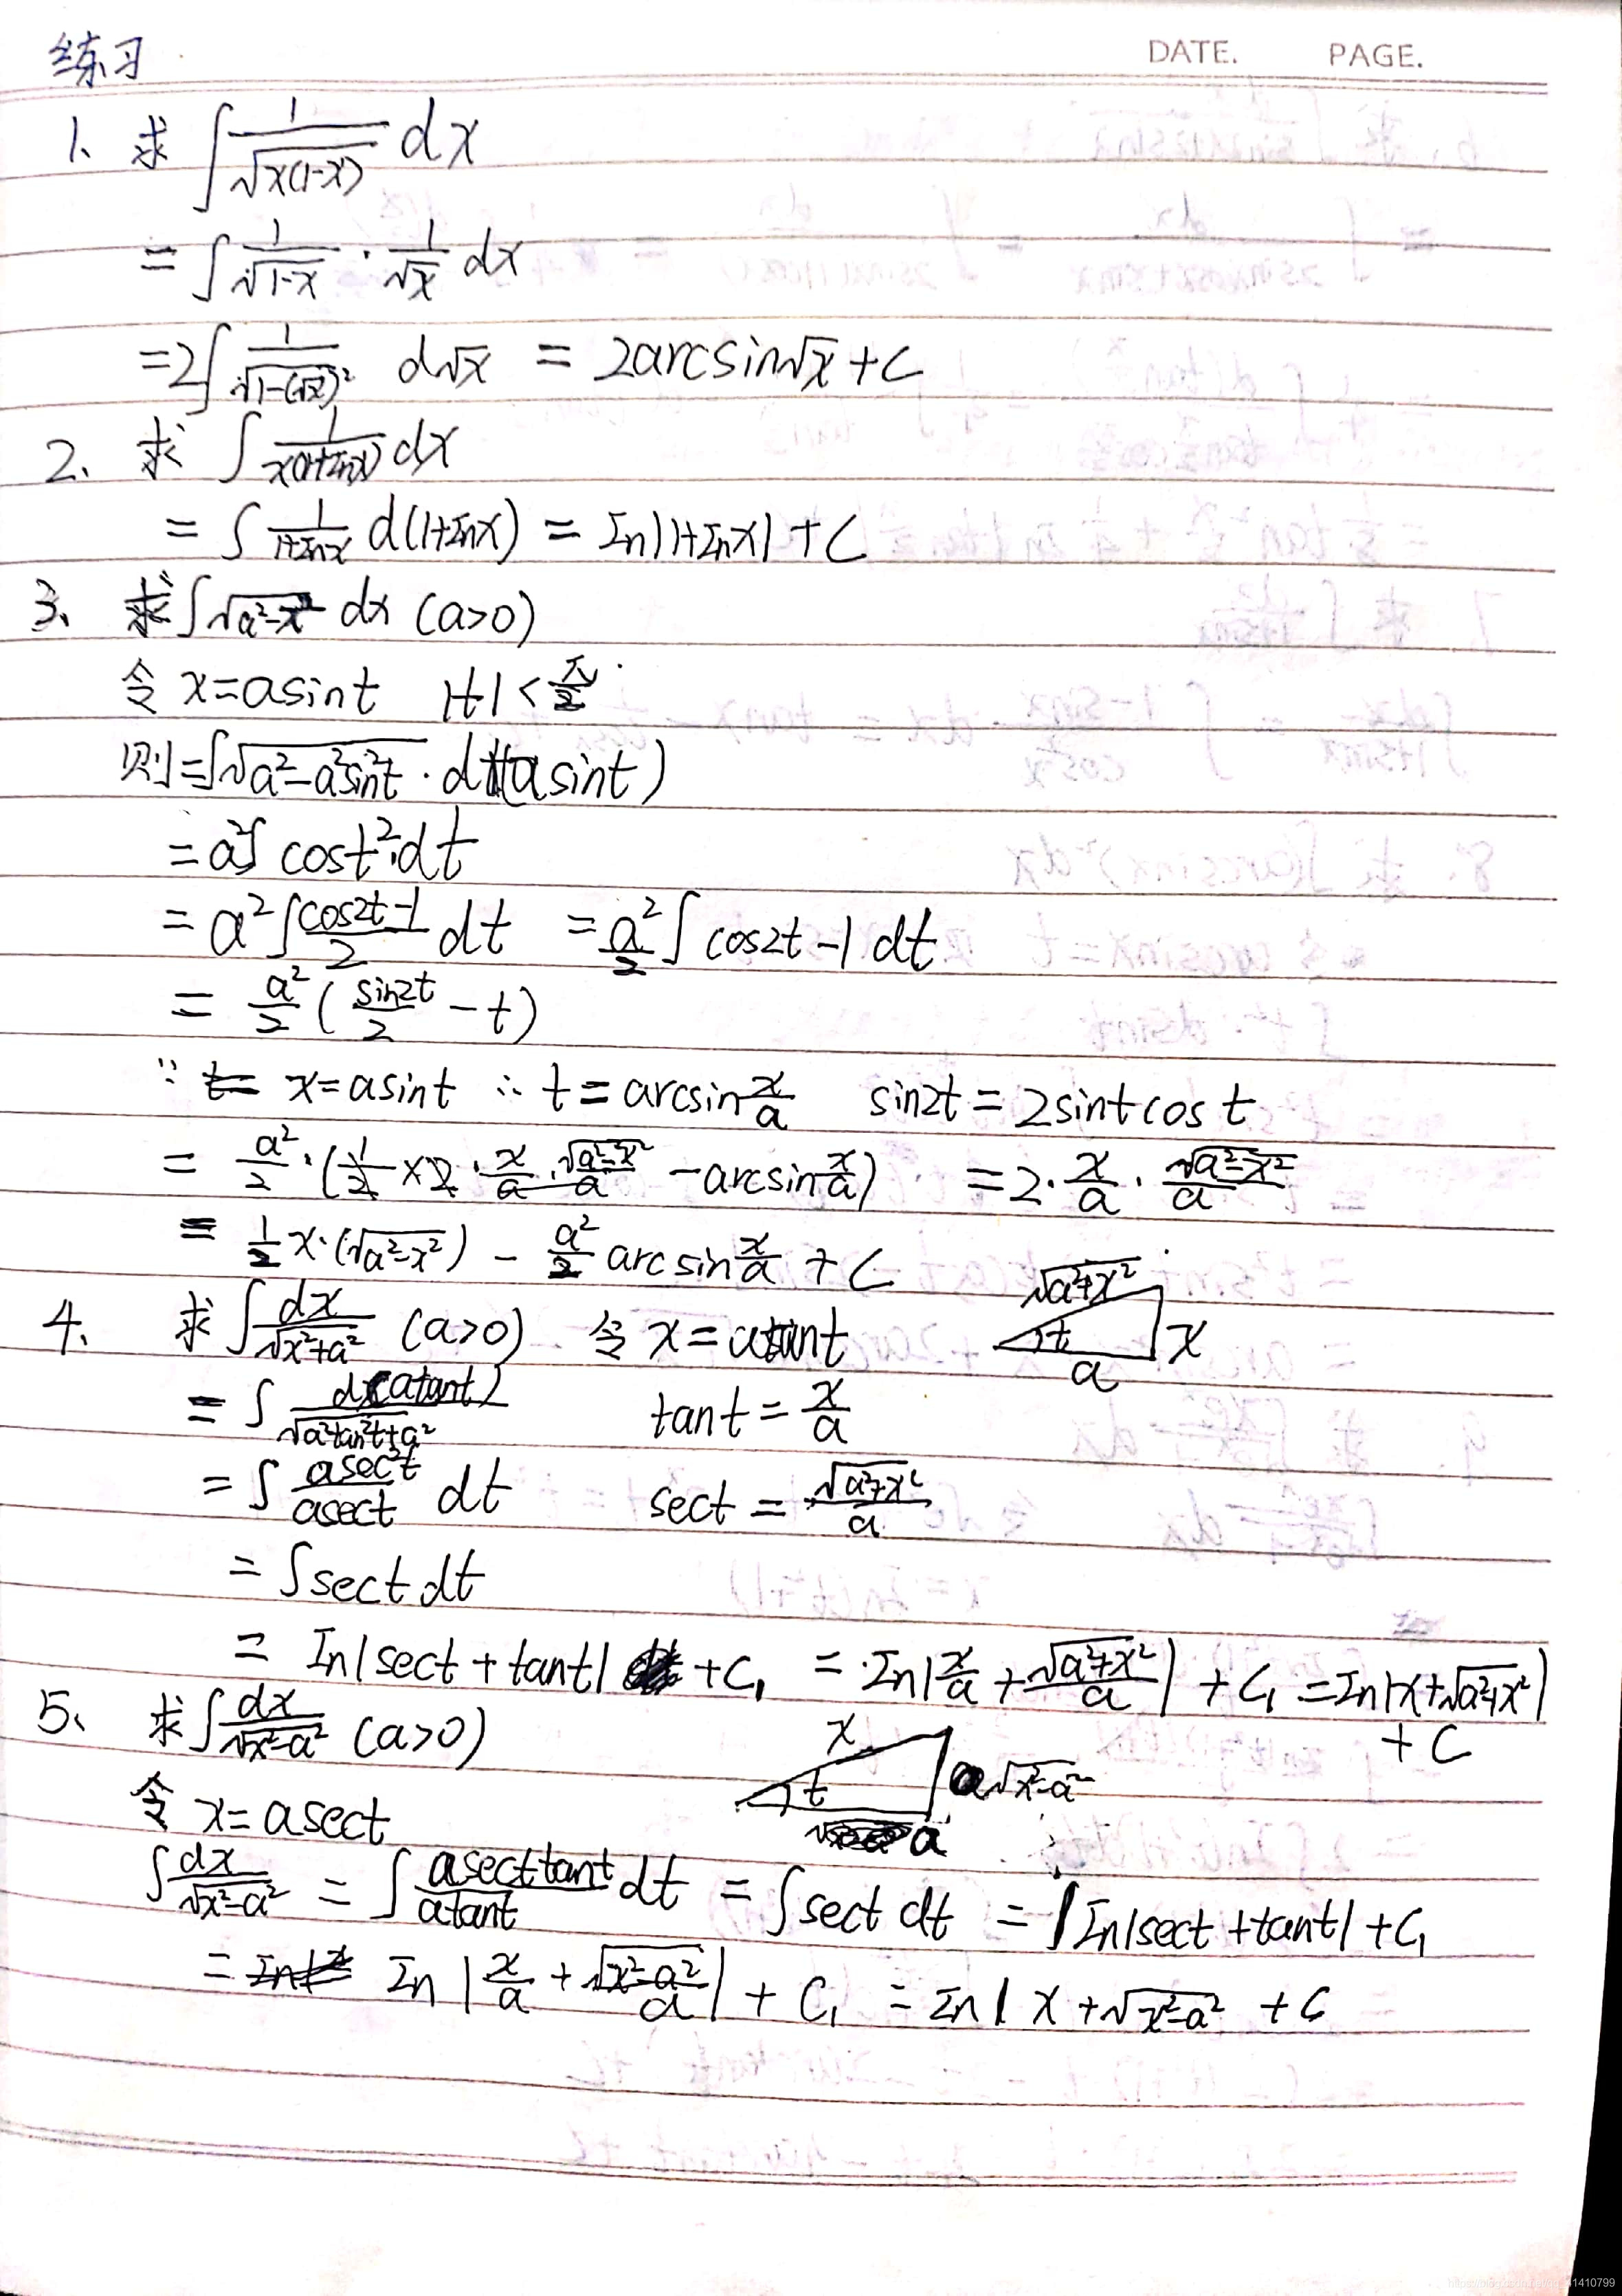 练习 DATE. PAGE.
1、求 ∫ 1/√(x(1-x)) dx
= ∫ 1/√(1-x) · 1/√x dx
= 2∫ 1/√(1-(√x)²) d√x = 2arcsin√x + C
2、求 ∫ 1/(x(1+lnx)) dx
= ∫ 1/(1+lnx) d(1+lnx) = ln|1+lnx| + C
3、求 ∫√(a²-x²) dx (a>0)
令 x=asint |t|<π/2
则=∫√(a²-a²sin²t) · d(asint)
= a²∫ cost² · dt
= a²∫ (cos2t-1)/2 dt = a²/2 ∫ cos2t-1 dt
= a²/2 ( sin2t/2 - t)
∵ x=asint ∴ t=arcsin x/a sin2t=2sintcost
= a²/2 · (1/2 × 2 · x/a · √(a²-x²)/a - arcsin x/a) = 2 · x/a · √(a²-x²)/a
= 1/2 x·(√(a²-x²)) - a²/2 arcsin x/a + C
4、求 ∫ dx/√(x²+a²) (a>0) 令 x=atant √(a²+x²) t a x
= ∫ d(atant)/√(a²tan²t+a²) tant = x/a
= ∫ asec²t/asect dt sect = √(a²+x²)/a
= ∫sect dt
= ln|sect+tant| + C₁ = ln|x/a + √(a²+x²)/a| + C₁ = ln|x+√(a²+x²)|
+ C
5、求 ∫ dx/√(x²-a²) (a>0) x t √(x²-a²) a
令 x=asect
∫ dx/√(x²-a²) = ∫ asect tant/atant dt = ∫sect dt = ln|sect+tant| + C₁
= ln|x/a + √(x²-a²)/a| + C₁ = ln|x+√(x²-a²) + C